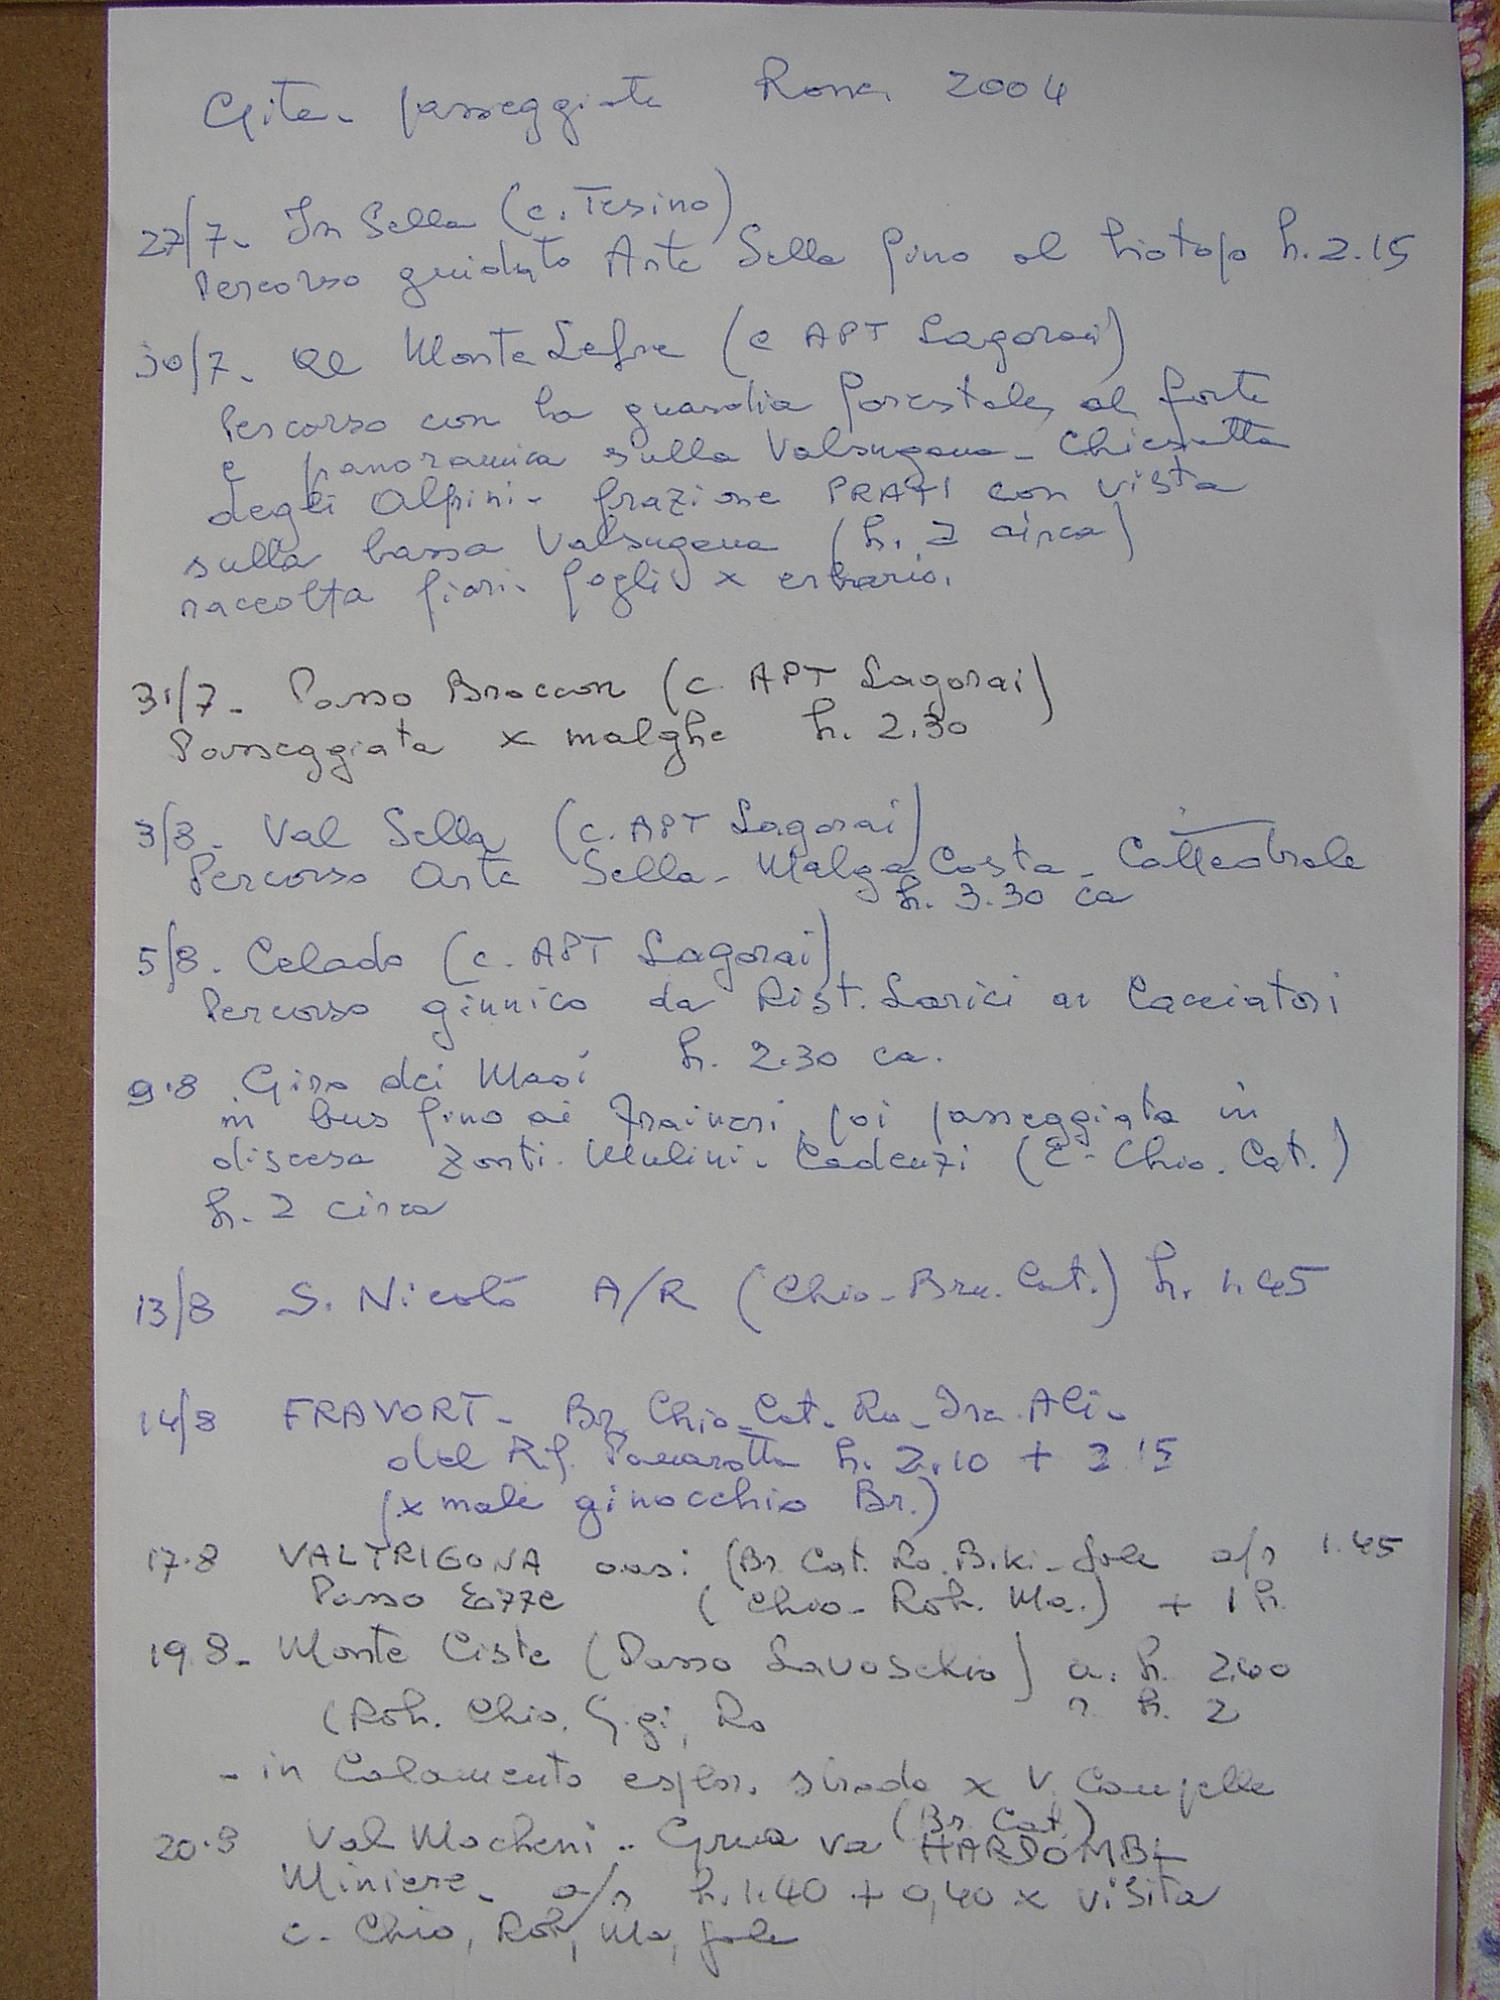 Gite - passeggiate Ronc. 2004
27/7 - In Sella (c. Tesino)
Percorso guidato Arte Sella fino al biotopo h. 2.15
30/7 - Al Monte Lefre (c APT Lagorai)
Percorso con la guardia forestale, al forte
e panoramica sulla Valsugana - Chiesetta
degli Alpini - frazione PRATI con vista
sulla bassa Valsugana (h. 2 circa)
raccolta fiori - fogli x erbario.
31/7 - Passo Broccon (c. APT Lagorai)
Passeggiata x malghe h. 2.30
3/8 - Val Sella (c. APT Lagorai)
Percorso Arte Sella - Malga Costa - Cattedrale
h. 3.30 ca
5/8 - Celado (c. APT Lagorai)
Percorso ginnico da Rist. Larici ai Cacciatori
h. 2.30 ca.
9.8 Giro dei Masi
in bus fino ai Fraineri, poi passeggiata in
discesa Zonti - Mulini - Cadenzi (E - Chio. Cat.)
h. 2 circa
13/8 S. Nicolò A/R (Chio - Bru. Cat.) h. 1.45
14/8 FRAVORT - Br. Chio - Cat. Ro - Ali -
dal Rif. Panarotta h. 2.10 + 2.15
(x male ginocchio Br.)
17.8 VALTRIGONA oasi (Br. Cat. Ro. Bi.ki - Jole a/r 1.45
Passo (Chio - Rob. Ma.) + 1 h.
19.8 - Monte Ciste (Passo ) a. h. 2.40
(Rob. Chio. Gigi, Ro r. h. 2
- in Calamento esplor. strada x V. Campelle
(Br. Cat.)
20.8 Val Mocheni - Grua va HARDOMBL
Miniere - a/r h. 1.40 + 0,40 x visita
c. Chio, Rob, Ma, Jole